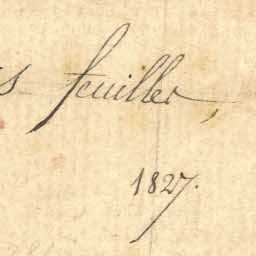 s feuilles,
1827.